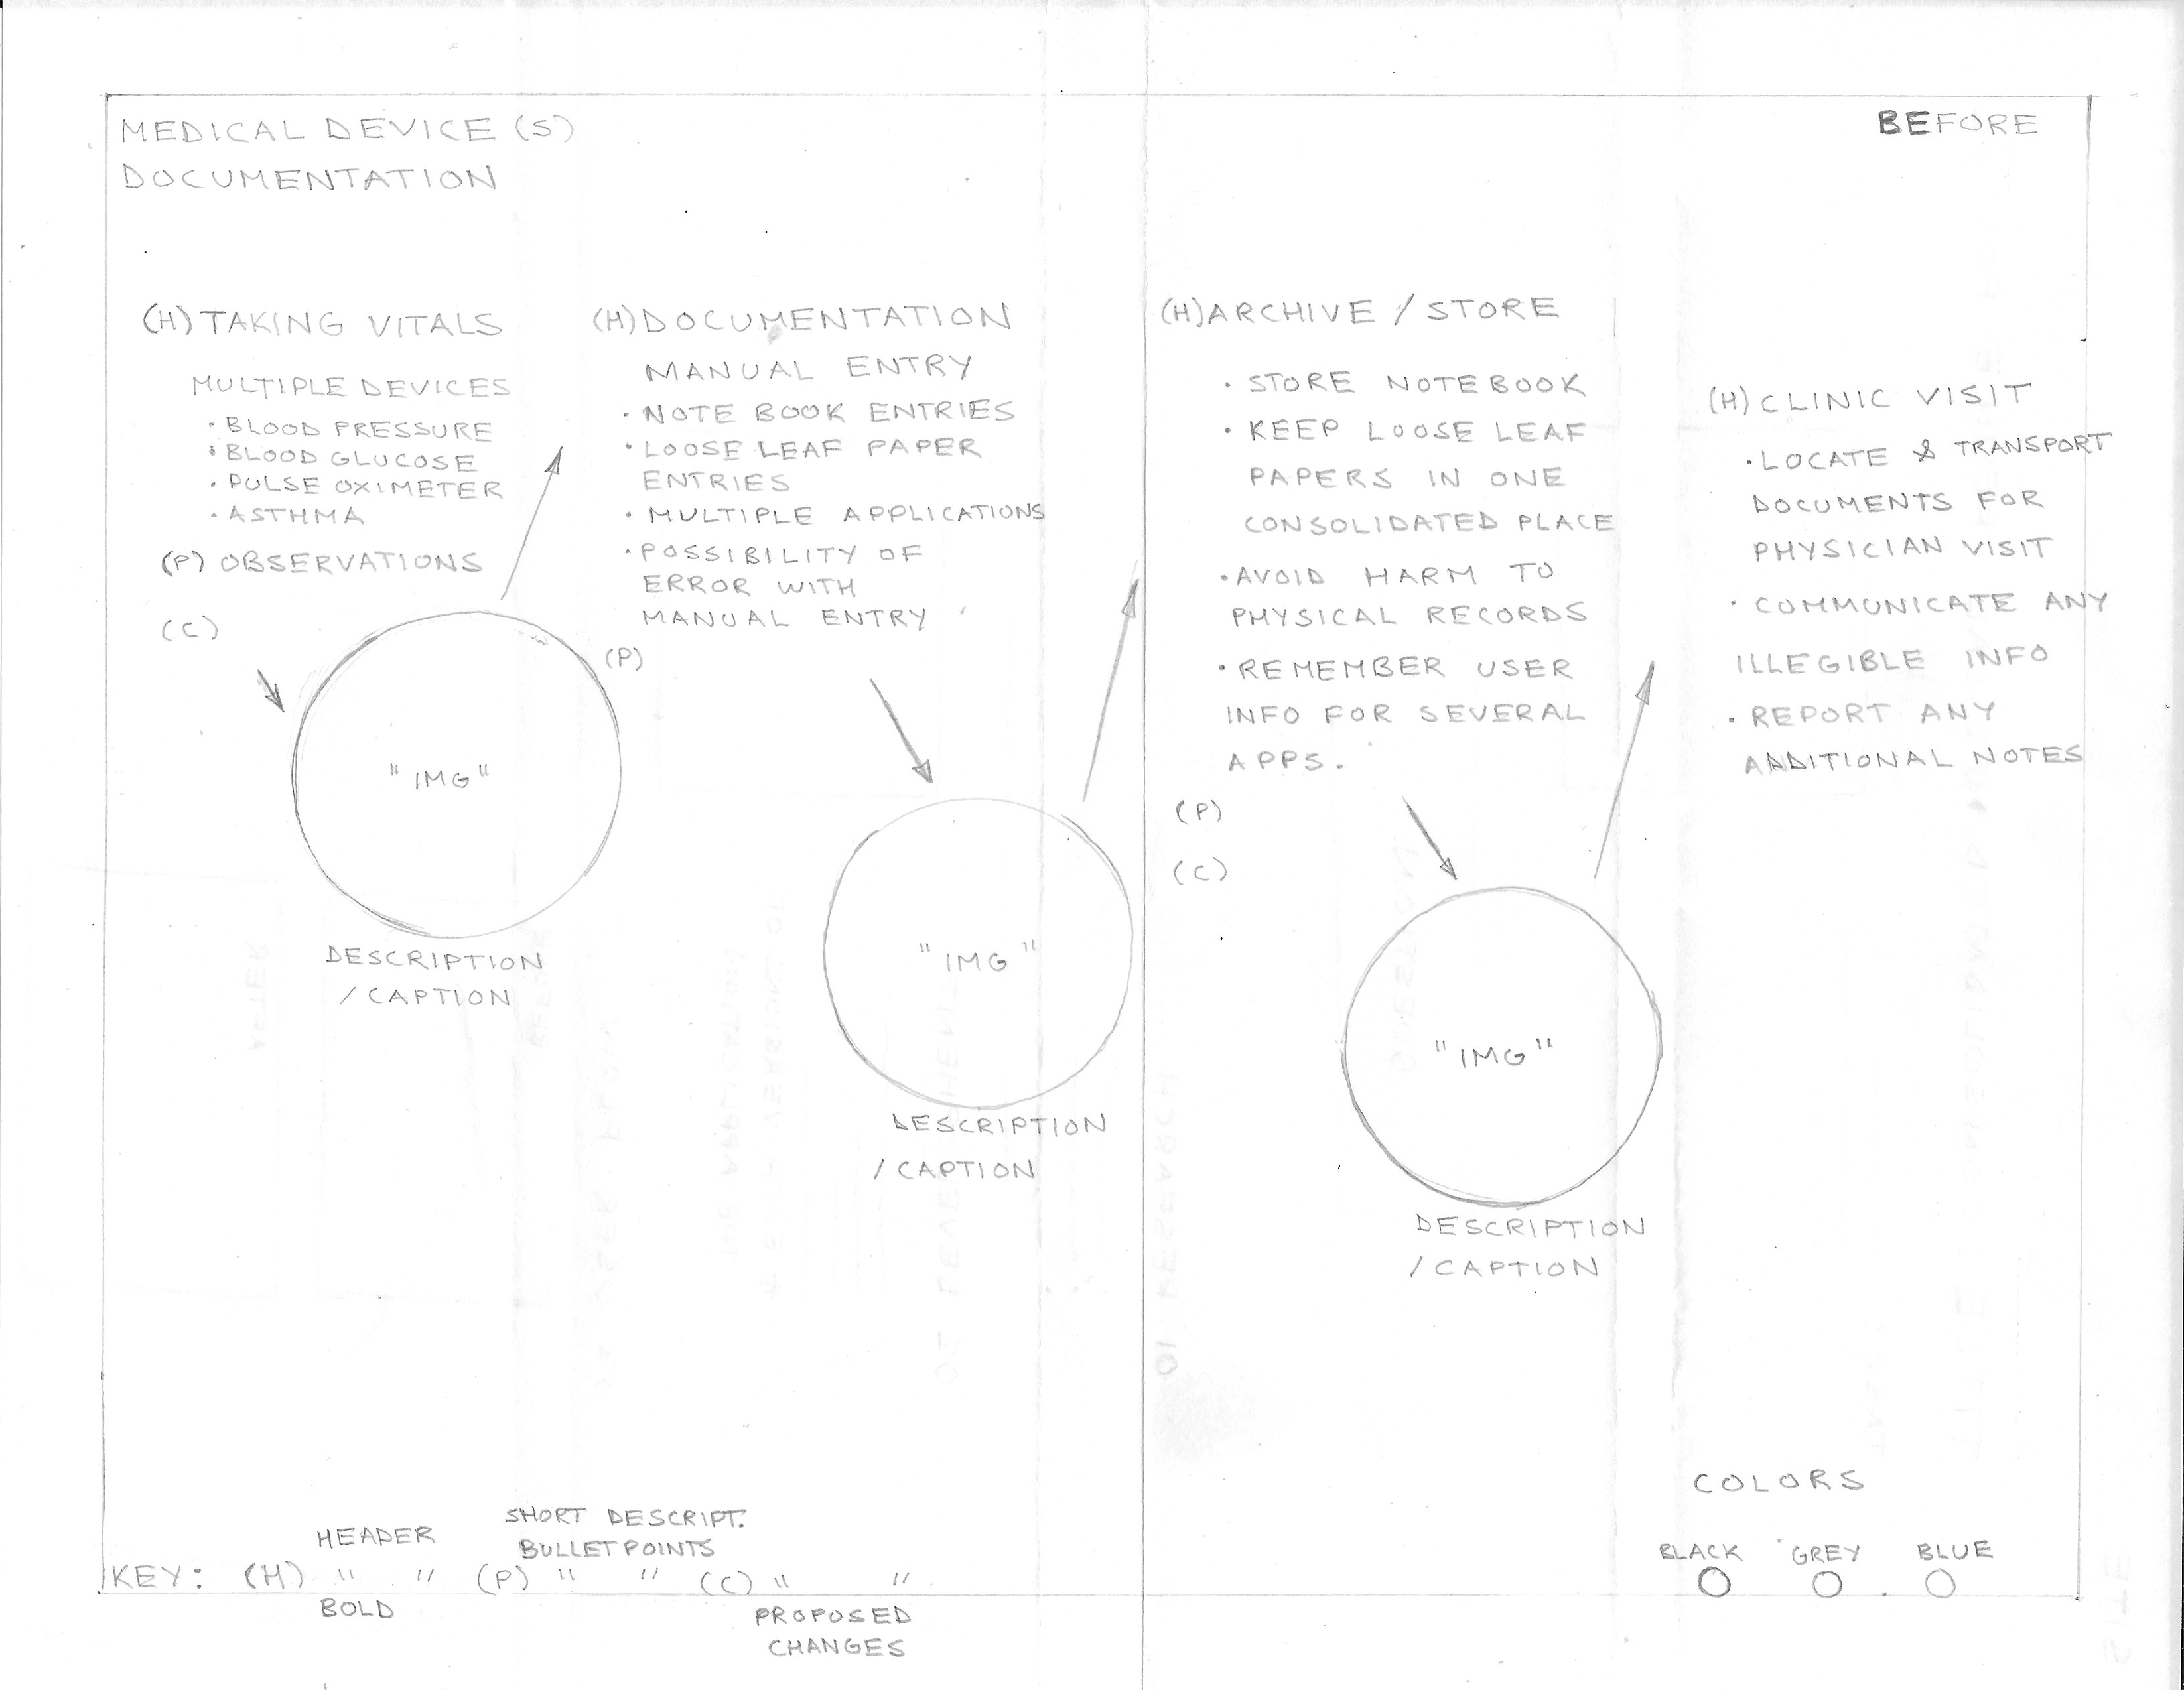 MEDICAL DEVICE (S)
DOCUMENTATION
BEFORE
(H) TAKING VITALS
MULTIPLE DEVICES
· BLOOD PRESSURE
· BLOOD GLUCOSE
· PULSE OXIMETER
· ASTHMA
(P) OBSERVATIONS
(C)
"IMG"
DESCRIPTION
/ CAPTION
(H) DOCUMENTATION
MANUAL ENTRY
· NOTE BOOK ENTRIES
· LOOSE LEAF PAPER
ENTRIES
· MULTIPLE APPLICATIONS
· POSSIBILITY OF
ERROR WITH
MANUAL ENTRY
(P)
"IMG"
DESCRIPTION
/ CAPTION
(H) ARCHIVE / STORE
· STORE NOTEBOOK
· KEEP LOOSE LEAF
PAPERS IN ONE
CONSOLIDATED PLACE
· AVOID HARM TO
PHYSICAL RECORDS
· REMEMBER USER
INFO FOR SEVERAL
APPS.
(P)
(C)
"IMG"
DESCRIPTION
/ CAPTION
(H) CLINIC VISIT
· LOCATE & TRANSPORT
DOCUMENTS FOR
PHYSICIAN VISIT
· COMMUNICATE ANY
ILLEGIBLE INFO
· REPORT ANY
ADDITIONAL NOTES
COLORS
BLACK GREY BLUE
HEADER
SHORT DESCRIPT.
BULLET POINTS
KEY: (H) " " (P) " " (C) " "
BOLD
PROPOSED
CHANGES